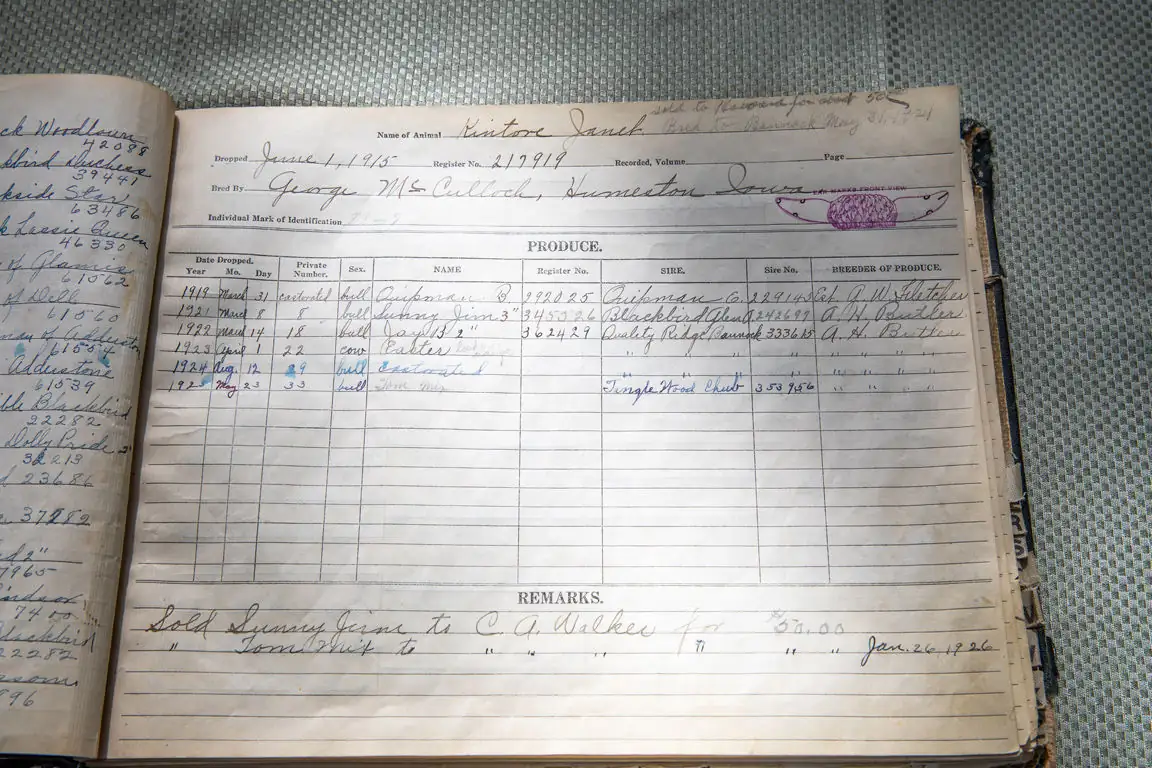 ck Woodlawn
42088
kbird Duchess
39441
kside Star
63486
k Lassie Queen
46330
of Glamis
61562
of Dell
61560
61554
Adderstone
61539
ble Blackbird
22282
Dolly Pride 3"
32213
d 23686
37282
d 2"
7965
indsor
7400
lackbird
22282
ssom
896
sold to for 50
Bred to Bannock May 31, 1921
Name of Animal Kintore Janet
Dropped June 1, 1915 Register No. 217919 Recorded, Volume Page
Bred By George Mc Culloch, Humeston Iowa
EAR MARKS FRONT VIEW
Individual Mark of Identification
PRODUCE.
Date Dropped. Year Mo. Day Private Number. Sex. NAME Register No. SIRE. Sire No. BREEDER OF PRODUCE.
1919 March 31 castrated bull Quipman B. 292025 Quipman G. 229143 Est A. W. Fletcher
1921 March 8 8 bull Sunny Jim 3" 345526 Blackbird Glen 242697 A. H. Butler
1922 March 14 18 bull Jay B 2" 362429 Quality Ridge Bannock 333615 A. H. Butler
1923 April 1 22 cow Easter " " " " " "
1924 Aug. 12 29 bull castrated " " " " " "
1925 May 23 33 bull Tom Mix Tingle Wood Chub 353956 " " "
REMARKS.
Sold Sunny Jim to C. A. Walker for $50.00
" Tom Mix to " " " " " " Jan. 26, 1926